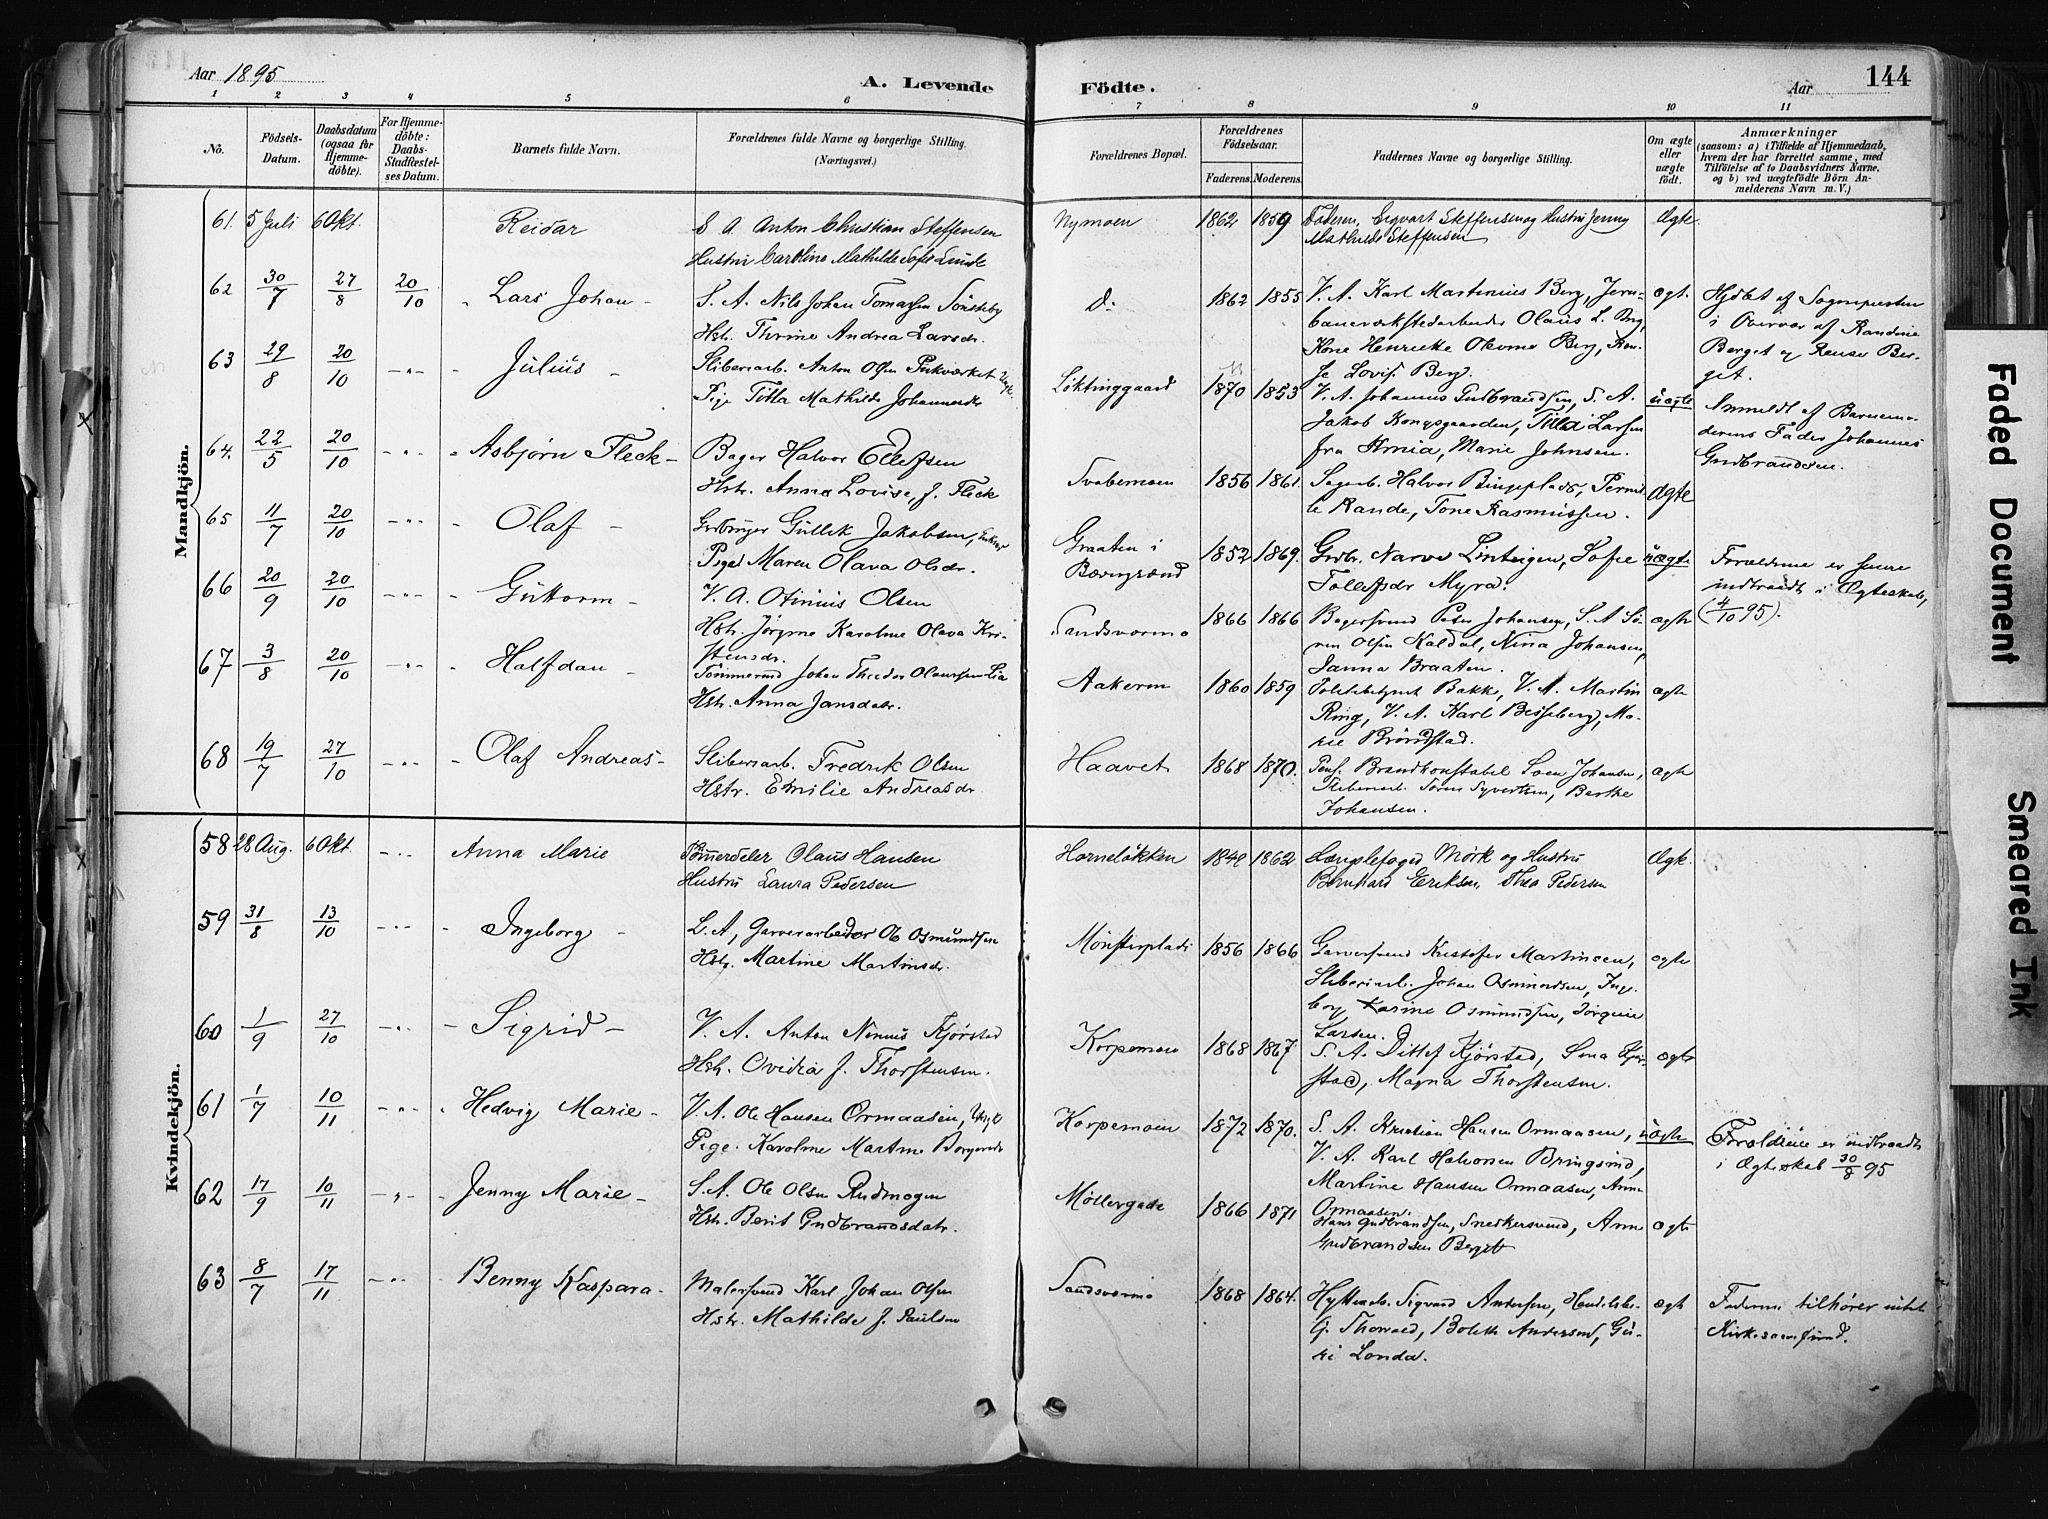 Aar 1895
A. Levende
Födte.
Aar
144
1 2 3 4 5 6 7 8 9 10 11
No.
Födsels-
Datum.
Daabsdatum
(ogsaa for
Hjemme-
döbte).
For Hjemme-
döbte:
Daabs-
Stadfæstel-
ses Datum.
Barnets fulde Navn.
Forældrenes fulde Navne og borgerlige Stilling.
(Næringsvei.)
Forældrenes Bopæl.
Forældrenes
Födselsaar.
Faderens. Moderens.
Faddernes Navne og borgerlige Stilling.
Om ægte
eller
uægte
födt.
Anmærkninger
(saasom: a) i Tilfælde af Hjemmedaab,
hvem der har forrettet samme, med
Tilföielse af to Daabsvidners Navne,
og b) ved uægtefödte Börn An-
melderens Navn m. V.)
Mandkjön.
61. 5 Juli 6 Okt. Reidar
S. A. Anton Christian Steffensen
Hustru Caroline Mathilde Sofie Lunde
Nymoen 1862 1859
Faderen, Sigvart Steffensen og Hustru Jenny
Mathilde Steffensen
Ægte
62 30/7 27/8 20/10 Lars Johan
S. A. Nils Johan Tomassen Tönsteby
Hstr. Thrine Andrea Larsdr.
D- 1862 1855
V. A. Karl Martinius Berg, Jern-
banevækstedarbeider Olaus L. Berg,
Kone Henrikke Olevine Berg,
Lovise Berg.
ægt.
Hjdøbt af Sognepresten
i Overvær af Randine
Berget og Rense Ber-
get.
63 29/8 20/10 Julius
Sliberiarb. Anton Olsen Pukværket Ungk.
Pige Tilla Mathilde Johannesdr
Løktinggaard 1870 1853
V. A. Johannes Gudbrandsen, S. A.
Jakob Kongsgaarden, Tilla Larsen
fra Amia, Marie Johnsen.
uægte
Anmeldt af Barnemo-
derens Fader Johannes
Gudbrandsen.
64. 22/5 20/10 Asbjørn Fleck
Bager Halvor Ellefsen
Hstr. Anna Lovise, J. Fleck
Svabemoen 1856 1861.
Sagarb. Halvor Bingeplads, Pernil-
le Rande, Tone Rasmussen.
Ægte
65 11/7 20/10 Olaf
Grdbruger Gullik Jakobsen, Enkem.
Pige Maren Olava Olsdr.
Graaten i
Bævergrænd 1852 1869.
Grdbr. Narve Linteigen, Sofie
Tollefsdr Myra.
uægte
Forældrene er senere
indtraadt i Ægteskab,
(4/10 95).
66 20/9 20/10 Guttorm
V. A. Otinius Olsen
Hstr. Jörgine Karoline Olava Kri-
stensdr.
Sandsværmo 1866 1866
Bagersvend Peter Johansen, S. A. Sö-
ren Olsen Kaldal, Nina Johansen,
Janna Braaten.
ægte
67 3/8 20/10 Halfdan
Tömmermd Johan Theodor Olaussen Lia
Hstr. Anna Jansdatr.
Aakeren 1860 1859
Politibetjent Bakke, V. A. Martin
Ring, V. A. Karl Besseberg, Ma-
rie Bröndstad.
ægte
68 19/7 27/10 Olaf Andreas
Sliberiarb. Fredrik Olsen
Hstr. Emilie Andreasdr
Haavet 1868 1870.
Pens. Brandkonstabel Sven Johansen,
Sliberiarb. Sören Syvertsen, Berthe
Johansen.
ægte
Kvindekjön.
58 28 Aug. 6 Okt. Anna Marie
Tömmerdeler Olaus Hansen
Hustru Laura Pedersen
Horneløkken 1841 1862
Lænsplefoged Mörk og Hustru
Bernhard Eriksen, Thea Pedersen
Ægte.
59 31/8 13/10 Ingeborg
L. A., Garverarbeider Ole Osmundsen
Hstr. Martine Martinsdr.
Mönsterplads 1856 1866
Garversvend Kristofer Martinsen,
Sliberiarb. Johan Osmundsen, Inge-
borg Karine Osmundsen, Jörgine
Larsen.
ægte
60 1/9 27/10 Sigrid
V. A. Anton Ninius Kjörstad
Hstr. Ovidia J. Thorstensen.
Korpemoen 1868 1867
S. A. Ditlef Kjörstad, Sina Kjör-
stad, Magna Thorstensen.
ægte
61 1/7 10/11 Hedvig Marie
V. A. Ole Hansen Ormaasen, Ungk
Pige. Karoline Martine Borgersdr
Korpemoen 1872 1870.
S. A. Kristian Hansen Ormaasen,
V. A. Karl Halvorsen Bringsrud,
Martine Hansen Ormaasen, Anne
Ormaasen.
uægte
Forældrene er indtraadt
i Ægteskab 30/8 95
62 17/9 10/11 Jenny Marie
S. A. Ole Olsen Rudmogen
Hstr. Berit Gudbrandsdatr.
Møllergade 1866 1871
Hans Gudbrandsen, Snedkersvend, Anne
Gudbrandsen Berget
ægte
63 8/7 17/11 Benny Kaspara
Malersvend Karl Johan Olsen
Hstr. Mathilde J. Paulsen
Sandsværmo 1868 1864.
Hyttearb. Sigvard Andersen, Handelsbe-
tj. Thorvald, Boleth Andersen, Gu-
ri Londa.
ægt
Faderen tilhører intet
Kirkesamfund.
Faded Document
Smeared Ink